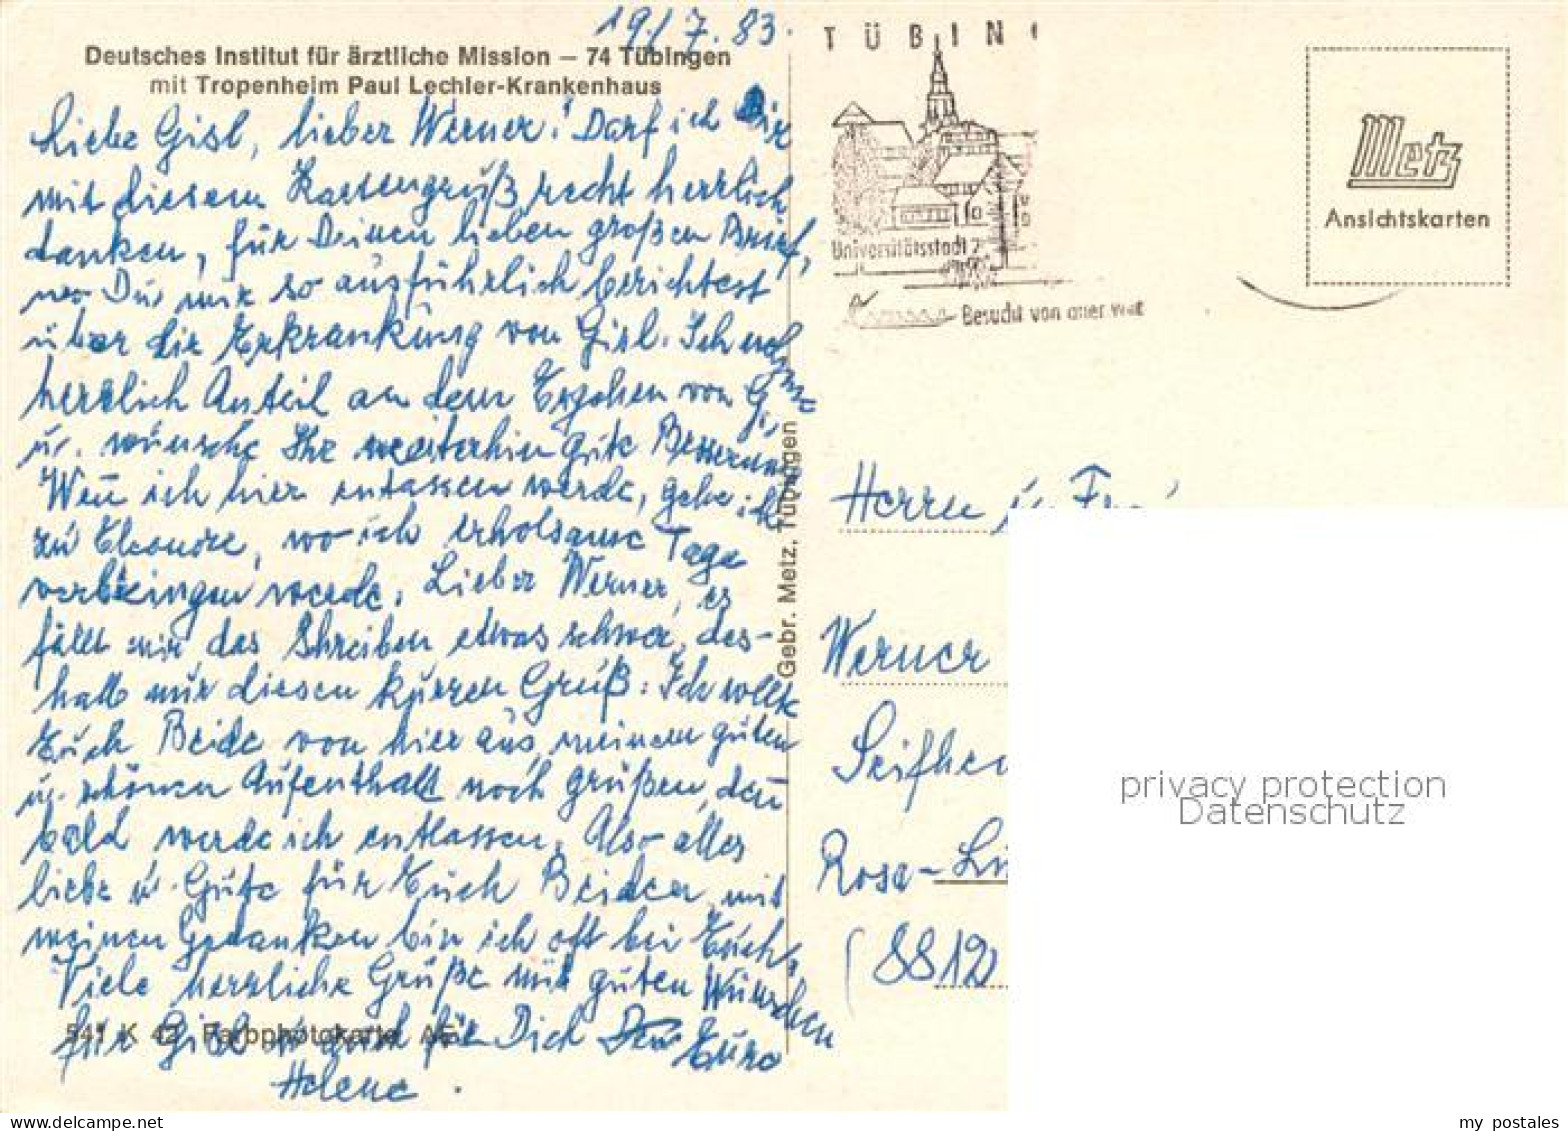 19/7.83.
Deutsches Institut für ärztliche Mission – 74 Tübingen
mit Tropenheim Paul Lechler-Krankenhaus
Liebe Gisl, lieber Werner! Darf ich Dir
mit diesem Kartengruß recht herzlich
danken, für Deinen lieben großen Brief,
wo Du mir so ausführlich berichtest
über die Erkrankung von Gisl. Ich nehme
herzlich Anteil an dem Ergehen von G.
u. wünsche Ihr weiterhin gute Besserung.
Wen ich hier entlassen werde, gehe ich
zu Eleonore, wo ich erholsame Tage
verbringen werde. Lieber Werner, es
fällt mir das Schreiben etwas schwer, des-
halb nur diesen kurzen Gruß. Ich wollte
Euch Beide von hier aus, meinem guten
u. schönen Aufenthalt noch grüßen, den
bald werde ich entlassen. Also alles
liebe u. Gute für Euch Beiden, mit
meinen Gedanken bin ich oft bei Euch.
Viele herzliche Grüße mit guten Wünschen
für Gisl u. auch für Dich Eure
Helene.
541 K 42 Farbphotokarte
Gebr. Metz, Tübingen
TÜBIN
Universitätsstadt
Besucht von aller Welt
Metz
Ansichtskarten
Herrn u.
Werner
Seifhe
Rosa-Lu
(8812
privacy protection
Datenschutz
my_postales